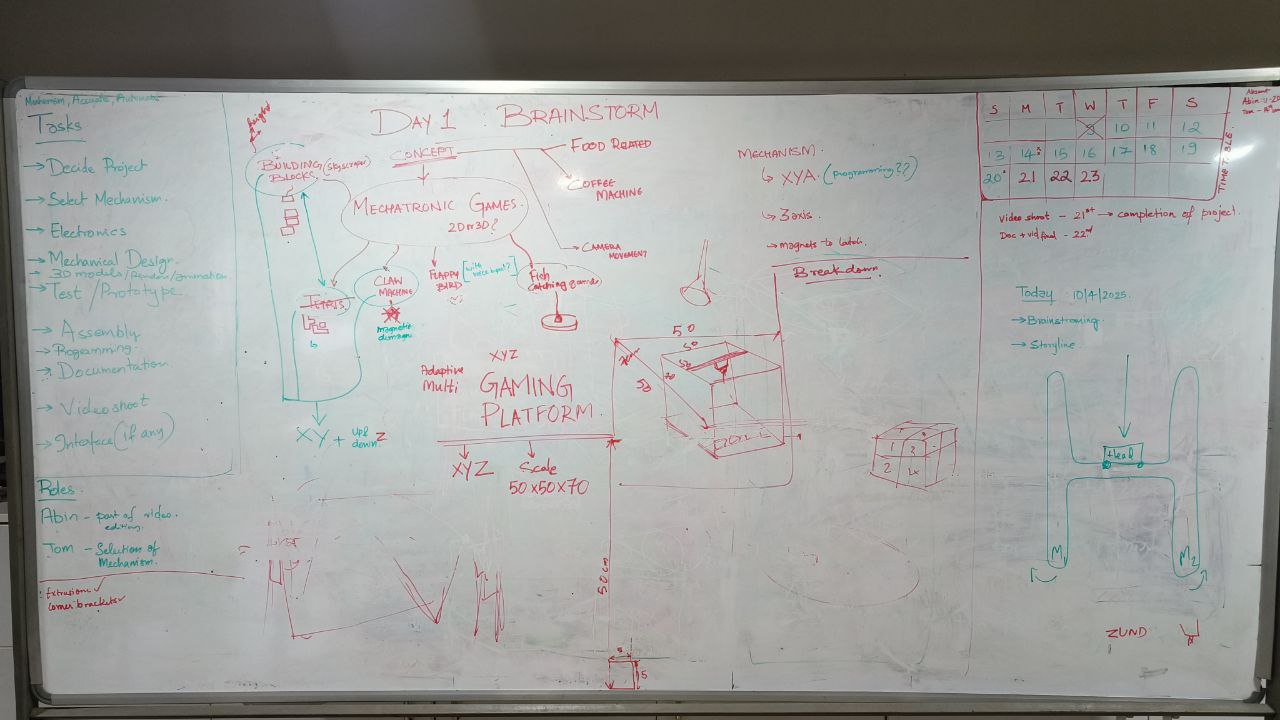 Mechanism, Accurate, Automate
Tasks
→ Decide Project
→ Select Mechanism.
→ Electronics
→ Mechanical Design.
→ 3D models/Render/animation
→ Test / Prototype
→ Assembly
→ Programming.
→ Documentation.
→ Video shoot
→ Interface (if any)
Roles
Abin - part of video
editing.
Tom - Selection of
Mechanism.
Extrusions ✓
corner brackets ✓
DAY 1 : BRAINSTORM
height
BUILDING (Skyscraper)
BLOCKS.
CONCEPT
→ FOOD RELATED
COFFEE
MACHINE
CAMERA
MOVEMENT
MECHATRONIC GAMES.
2D or 3D?
TETRIS
CLAW
MACHINE
magnetic
FLAPPY
BIRD
[with voice input?]
Fish
catching game
XY + up & down Z
XYZ
Adaptive
Multi
GAMING
PLATFORM.
XYZ
Scale
50x50x70
MECHANISM.
↳ XYA. (programming??)
→ 3 axis.
→ magnets to latch.
Break down.
50
50
50
70
50
50 cm
5
5
1
3
2
S M T W T F S
9 10 11 12
13 14 15 16 17 18 19
20 21 22 23
TIME TABLE
Absent
Video shoot - 21st → completion of project.
Doc + vid final - 22nd
Today : 10/4/2025.
→ Brainstroming.
→ Storyline.
Head
M1
M2
ZUND